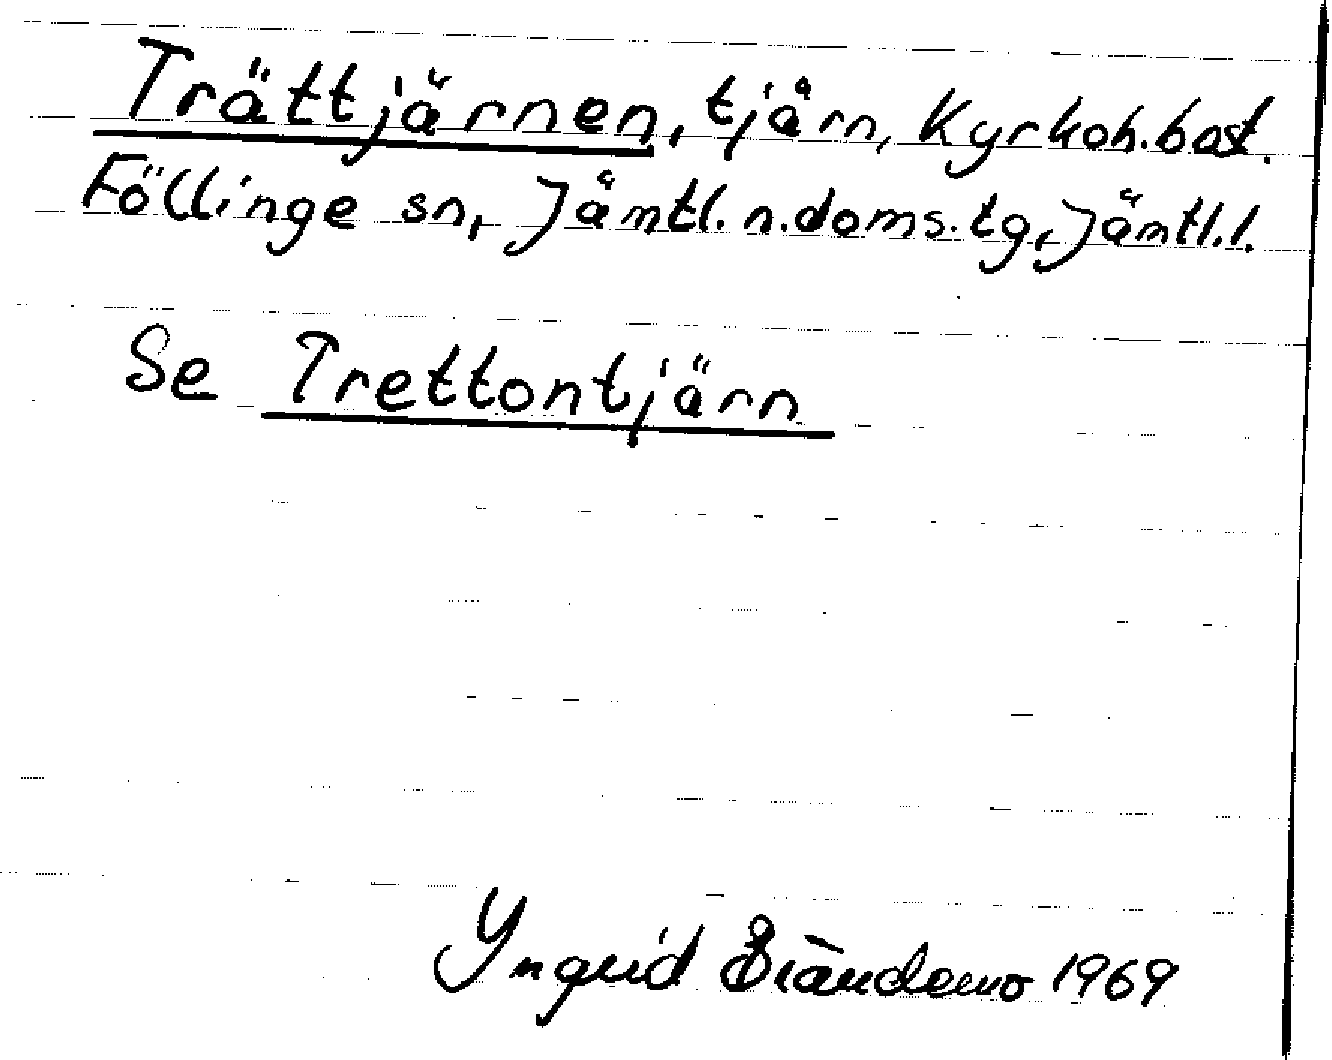 Trättjärnen, tjärn, Kyrkoh.bost.
Föllinge sn, Jämtl. n.doms.tg, Jämtl.l.
Se Trettontjärn
Yngrid 1969